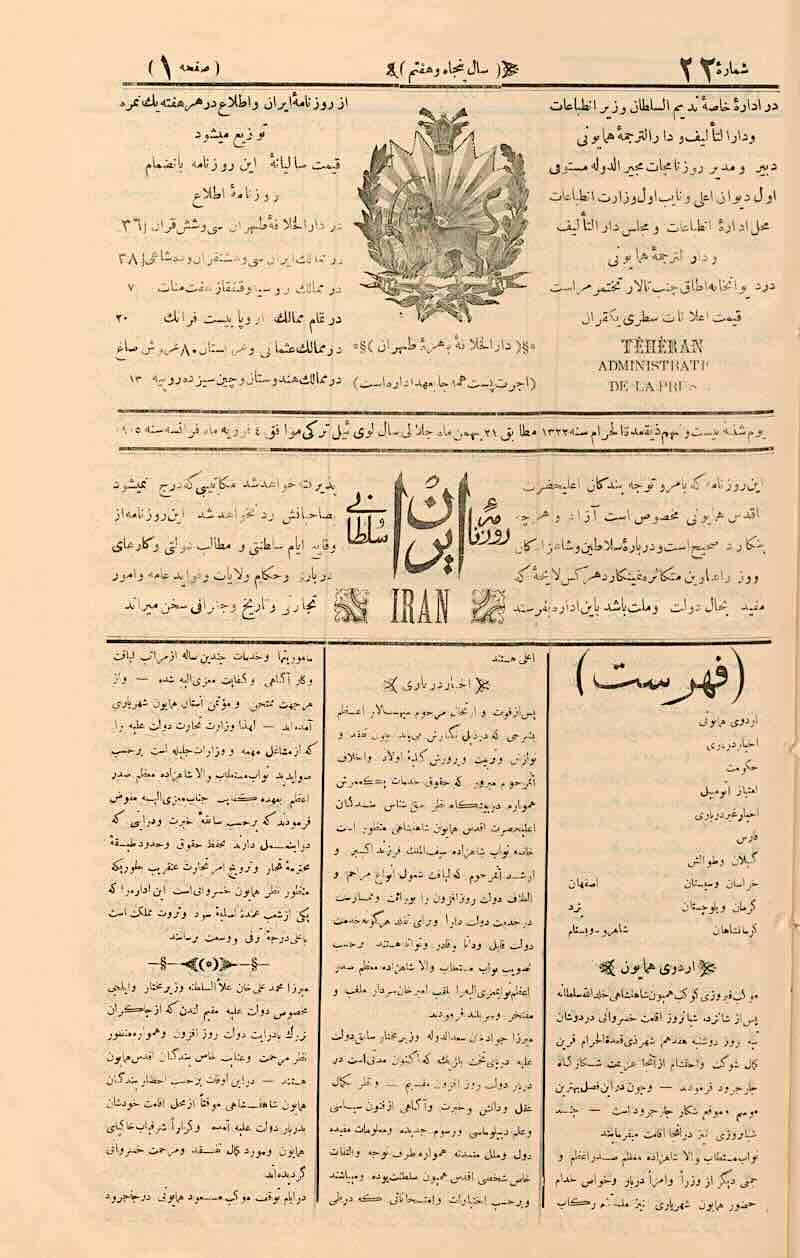 شمارهٔ ۲۲
( سال پنجاه و هفتم )
( صفحه ۱ )
در ادارهٔ خاصهٔ ندیم السلطان وزیر انطباعات
و دار التألیف و دار الترجمهٔ همایونی
دبیر و مدیر روزنامجات مجیر الدوله مستوفی
اول دیوان اعلی و نایب اول وزارت انطباعات
محل ادارهٔ انطباعات و مجلس دار التألیف
و دار الترجمهٔ همایونی
در دیوانخانه اطاق جنب تالار تختمرمر است
قیمت اعلانات سطری یکقران
TÉHÉRAN
ADMINISTRATI
DE LA PRES
از روزنامهٔ ایران و اطلاع در هر هفته یک نمره
توزیع میشود
قیمت سالیانهٔ این روزنامه بانضمام
روزنامهٔ اطلاع
در دار الخلافهٔ طهران سی و شش قران ۳۶
در ممالک ایران سی و هشتقران و ده شاهی ۳۸
در ممالک روسیه و قفقاز هفت منات ۷
در تمام ممالک اروپا بیست فرانک ۲۰
در ممالک عثمانی و عربستان ۸۰ غروش صاغ
در ممالک هندوستان و چین سیزده روپیه ۱۳
( دار الخلافهٔ باهرهٔ طهران )
(اجرت پست همه جا بعهدهٔ اداره است)
یوم شنبه بیست و نهم ذیقعدة الحرام سنه ۱۳۲۲ مطابق ۲۱ بهمن ماه جلالی سال لوی ئیل ترکی موافق ٤ فوریه ماه فرانسه سنه ۱۹۰۵
این روزنامه که بامر و توجه بندگان اعلیحضرت
اقدس همایونی مخصوص است آزاد و هر چه
بنگارد صحیح است و دربارهٔ سلاطین و شاهزادگان
و وزراء عناوین متکاثره نمینگارد هر کس لایحهٔ که
مفید بحال دولت و ملت باشد باین اداره بفرستد
روزنامهٔ
ایران
سلطانی
IRAN
پذیرفته خواهد شد مکاتیبی که درج نمیشود
بصاحبانش رد نخواهد شد این روزنامه از
وقایع ایام سلطنتی و مطالب دولتی و کارهای
دربار و حکام ولایات و فواید عامه و امور
تجارتی و تاریخ و جغرافی سخن میراند
(فهرست)
اردوی همایونی
اخبار درباری
حکومت
امتیاز اتومبیل
اخبار غیر درباری
فارس
گیلان و طوالش
خراسان و سیستان اصفهان
کرمان و بلوچستان یزد
کرمانشاهان شاهرود و بسطام
اردوی همایون
موکب فیروزی کوکب همیون شاهنشاهی خلد الله سلطانه
پس از شانزده شبانروز اقامت خسروانی در دوشان
تپه روز دوشنبه هفدهم شهر ذیقعدة الحرام قرین
کمال شوکت و احتشام از آنجا عزیمت شکارگاه
جاجرود فرمودند — و چون در این فصل بهترین
موسم و موقع شکار جاجرود است — چند
شبانروزی نیز در آنجا اقامت میفرمایند
نواب مستطاب والا شاهزاده معظم صدر اعظم و
جمعی دیگر از وزراء و امراء دربار و خواص خدام
حضور همایون شهریاری نیز ملتزم رکاب
اعلی هستند
اخبار درباری
پس از فوت و ارتحال مرحوم سپهسالار اعظم
بشرحی که در ذیل نگارش مییابد چون تفقد و
نوازش و تربیت و پرورش کلیهٔ اولاد و اخلاف
آنمرحوم مبرور که حقوق خدمات
همواره در پیشگاه نظر حق شناس بندگان
اعلیحضرت اقدس همایون شاهنشاهی منظور است
خاصه نواب شاهزاده سیف الملک فرزند اکبر و
ارشد آنمرحوم که لیاقت شمول انواع مراحم و
الطاف دولت روز افزون را بوراثت و ممارست
در خدمت دولت دارا و برای تقلد هر گونه خدمت
دولت قابل و دانا و قادر و توانا هستند برحسب
تصویب نواب مستطاب والا شاهزاده معظم صدر
اعظم نواب معزی الیه را بلقب امیرخان سردار ملقب و
مفتخر و سربلند فرمودند
میرزا جوادخان سعد الدوله وزیر مختار سابق دولت
علیه در پای تخت بلژیک که اکنون مدتی است در
دربار دولت روز افزون مقیم — و نظر بکمال
عقل و دانش و خبرت و آگاهی از فنون سیاسی
و علم دیپلوماسی و رسوم جدیده و معلومات مفیده
دول و ملل متمدنه همواره طرف توجه و التفات
خاص شخصی اقدس همیون سلطنت بوده و میباشند
و برحسب اختبارات و امتحاناتی که در طی
ماموریتها و خدمات چندین ساله از مراتب لیاقت
و کار آگاهی و کفایت معزی الیه شده — و از
هر جهت ممتحن و مؤتمن آستان همایون شهریاری
آمده اند — لهذا وزارت تجارت دولت علیه را
که از مشاغل مهمه و وزارات جلیله است برحسب
صوابدید نواب مستطاب والا شاهزاده معظم صدر
اعظم بعهده کفایت جناب معزی الیه مفوض
فرمودند که برحسب سابقهٔ خبرت و درایتی که
در اینعمل دارند بحفظ حقوق و حدود طبقهٔ
محترمهٔ تجار و ترویج امر تجارت عنقریب بطوریکه
منظور نظر همایون خسروانی است این اداره را که
یکی از شعب عمدهٔ اصلیهٔ سود و ثروت مملکت است
باعلی درجهٔ ترقی و وسعت برسانند
میرزا محمد علی خان علاء السلطنه وزیر مختار و ایلچی
مخصوص دولت علیه مقیم لندن که از چاکران
بزرگ بادرایت دولت روز افزون و همواره منظور
نظر مرحمت و عنایت خاص بندگان اقدس همایون
هستند — در این اوقات برحسب احضار بندگان
همایون شاهنشاهی موقتاً از محل اقامت خودشان
بدربار دولت علیه آمده و کراراً شرفیاب خاکپای
همایون و مورد کمال تفقد و مرحمت خسروانی
گردیده اند
در ایام توقف موکب مسعود همایونی در جاجرود